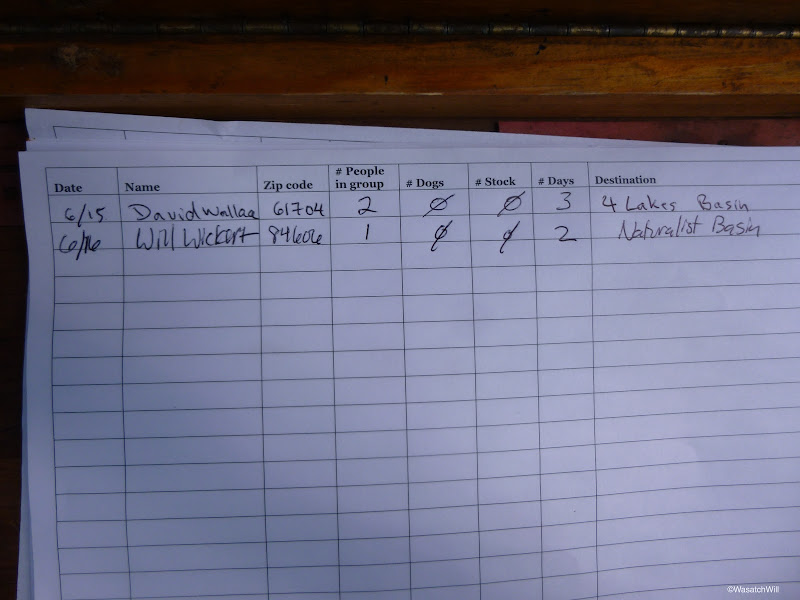 Date Name Zip code # People in group # Dogs # Stock # Days Destination
6/15 David Wallace 61704 2 0 0 3 4 Lakes Basin
6/16 Will Wickert 84606 1 0 0 2 Naturalist Basin
©WasatchWill